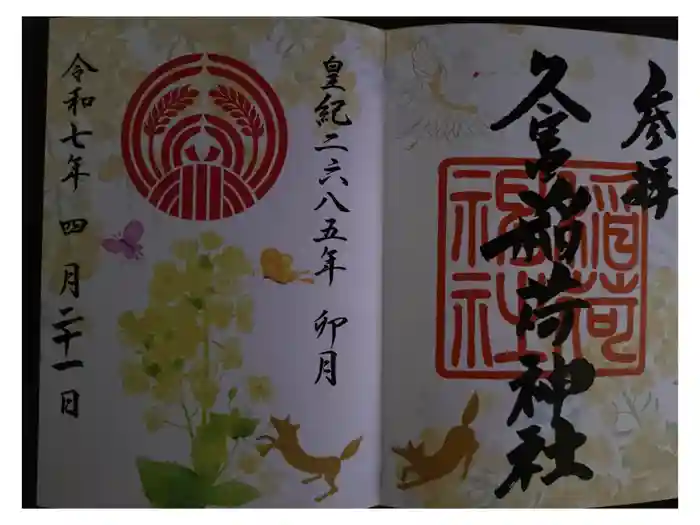 参拝
久冨稲荷神社
稲荷
神社
皇紀二六八五年 卯月
令和七年 四月二十一日